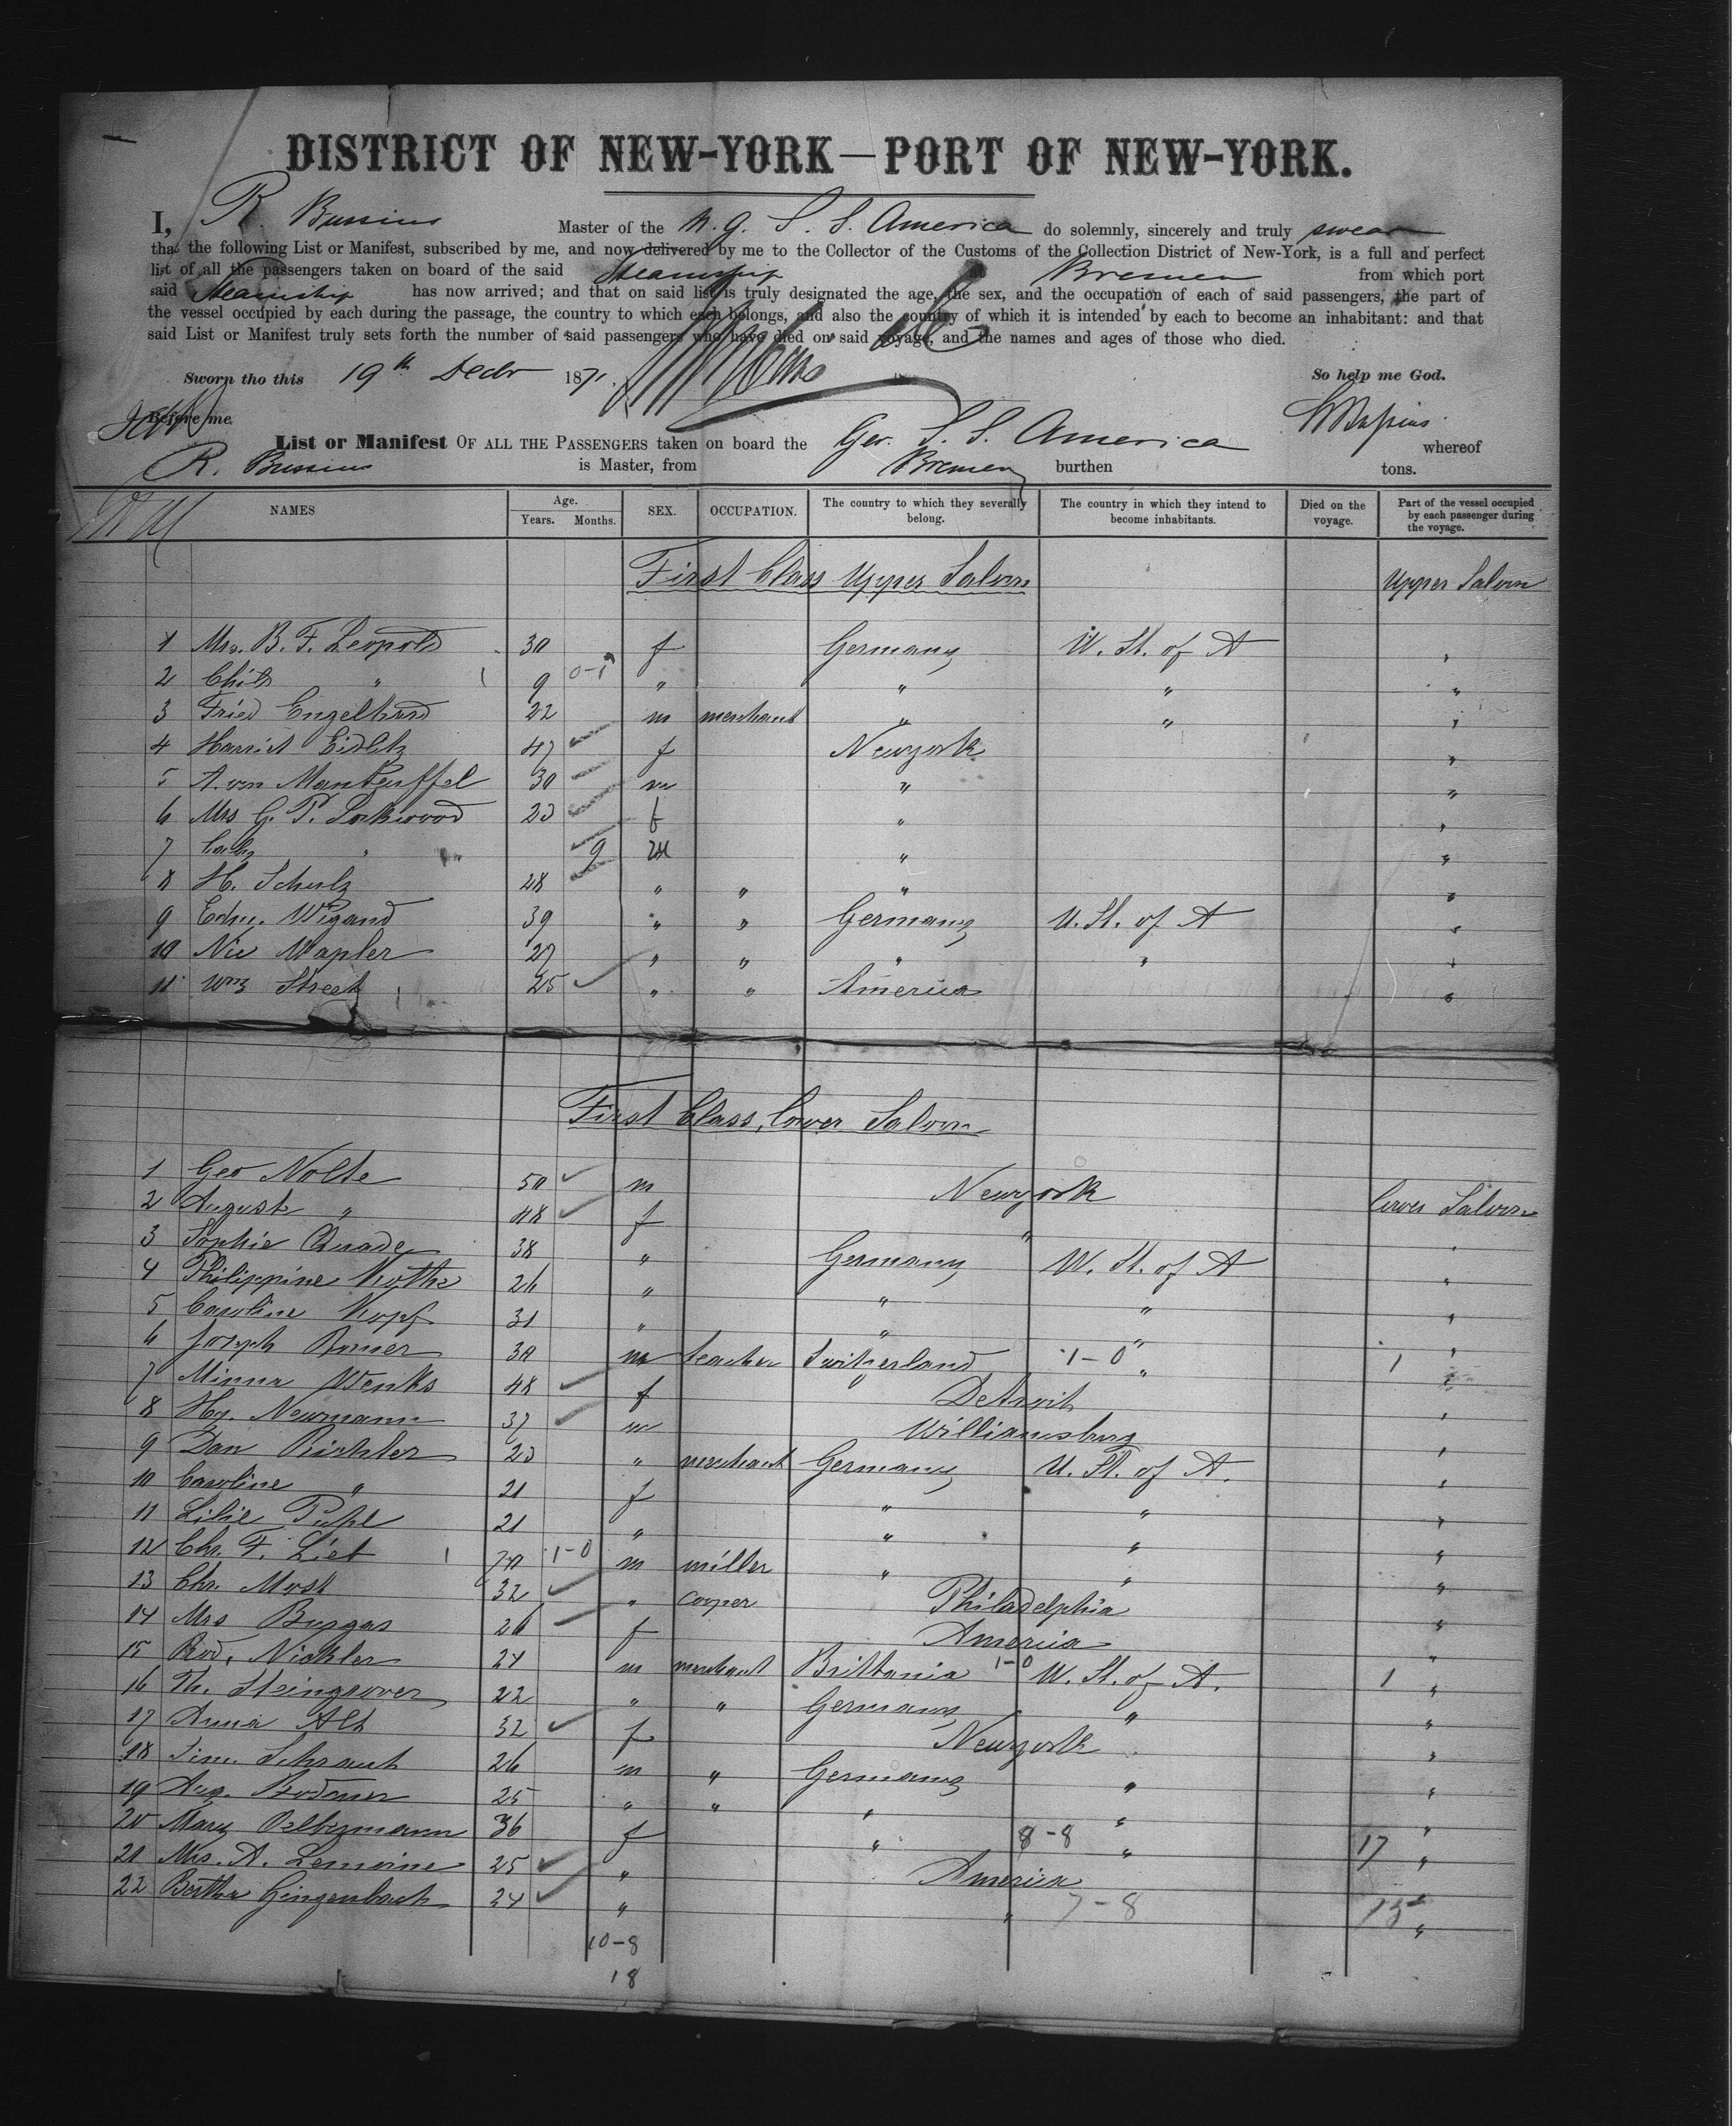 DISTRICT OF NEW-YORK—PORT OF NEW-YORK.
I, R. Bussius Master of the N. G. S. S. America do solemnly, sincerely and truly swear
that the following List or Manifest, subscribed by me, and now delivered by me to the Collector of the Customs of the Collection District of New-York, is a full and perfect
list of all the passengers taken on board of the said Steamship Bremen from which port
said Steamship has now arrived; and that on said list is truly designated the age, the sex, and the occupation of each of said passengers, the part of
the vessel occupied by each during the passage, the country to which each belongs, and also the country of which it is intended by each to become an inhabitant: and that
said List or Manifest truly sets forth the number of said passengers who have died on said voyage, and the names and ages of those who died.
Sworn tho this 19th Decbr 1871. So help me God.
Before me
List or Manifest OF ALL THE PASSENGERS taken on board the Ger. S. S. America whereof
R. Bussius is Master, from Bremen burthen tons.
NAMES Age. Years. Months. SEX. OCCUPATION. The country to which they severally belong. The country in which they intend to become inhabitants. Died on the voyage. Part of the vessel occupied by each passenger during the voyage.
First Class Upper Saloon Upper Saloon
1 Mrs. B. F. Leopold 30 f Germany U. St. of A "
2 Child " 9 0-1 " " " "
3 Fried Engelhard 22 m merchant " " "
4 Harriet Eidlitz 47 f Newyork "
5 A. von Manteuffel 30 m " "
6 Mrs G. P. Lockwood 23 f " "
7 " 9 M " "
8 H. Schulz 28 " " " "
9 Edm. Wigand 39 " " Germany U. St. of A "
10 Nic Wapler 27 " " " " "
11 Wm Street 25 " " America "
First Class, Lower Saloon
1 Geo Nolte 50 m Newyork Lower Saloon
2 August " 48 f " "
3 Sophie Quade 38 " Germany U. St. of A "
4 Philippine Kothe 26 " " " "
5 Caroline Kopf 31 " " " "
6 Joseph 30 m teacher Switzerland 1-0 " 1 "
7 Minna Wenks 48 f Detroit "
8 Hy. Newmann 37 m Williamsburg "
9 Dan Richter 23 " merchant Germany U. St. of A. "
10 Caroline " 21 f " " "
11 Lilie 21 " " " "
12 Chr. F. Lieb 70 1-0 m miller " " "
13 Chr. Most 32 " cooper Philadelphia "
14 Mrs 26 f America "
15 Rod. Nickler 24 m merchant Brittania 1-0 U. St. of A. 1 "
16 Th. Steingrover 22 " " Germany " "
17 Anna Alt 32 f Newyork "
18 Sim. Schraut 26 m " Germany " "
19 Aug. Bodmer 25 " " " " "
20 Mary Delbermann 36 f " 8-8 " 17 "
21 Mrs. A. Lemoine 25 " America "
22 Bertha Gingenbach 24 " " 7-8 15 "
10-8
18